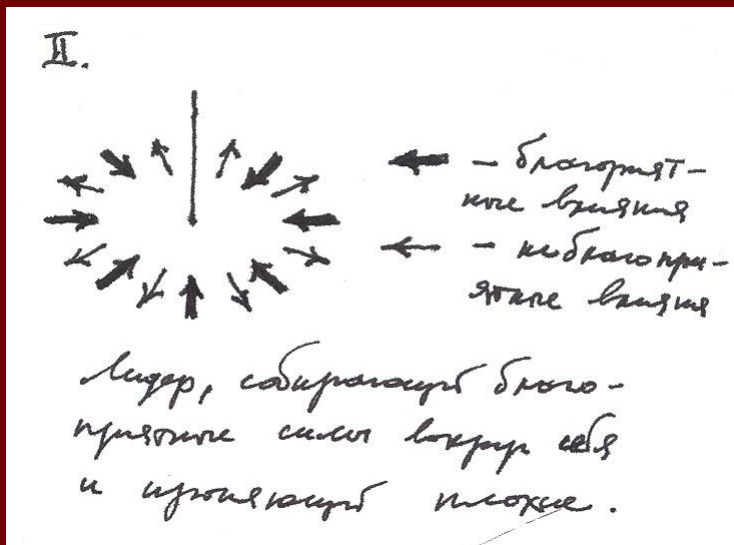 II.
– благоприят-
ные влияния
– неблагопри-
ятные влияния
Лидер, собирающий благо-
приятные силы вокруг себя
и изгоняющий плохие.